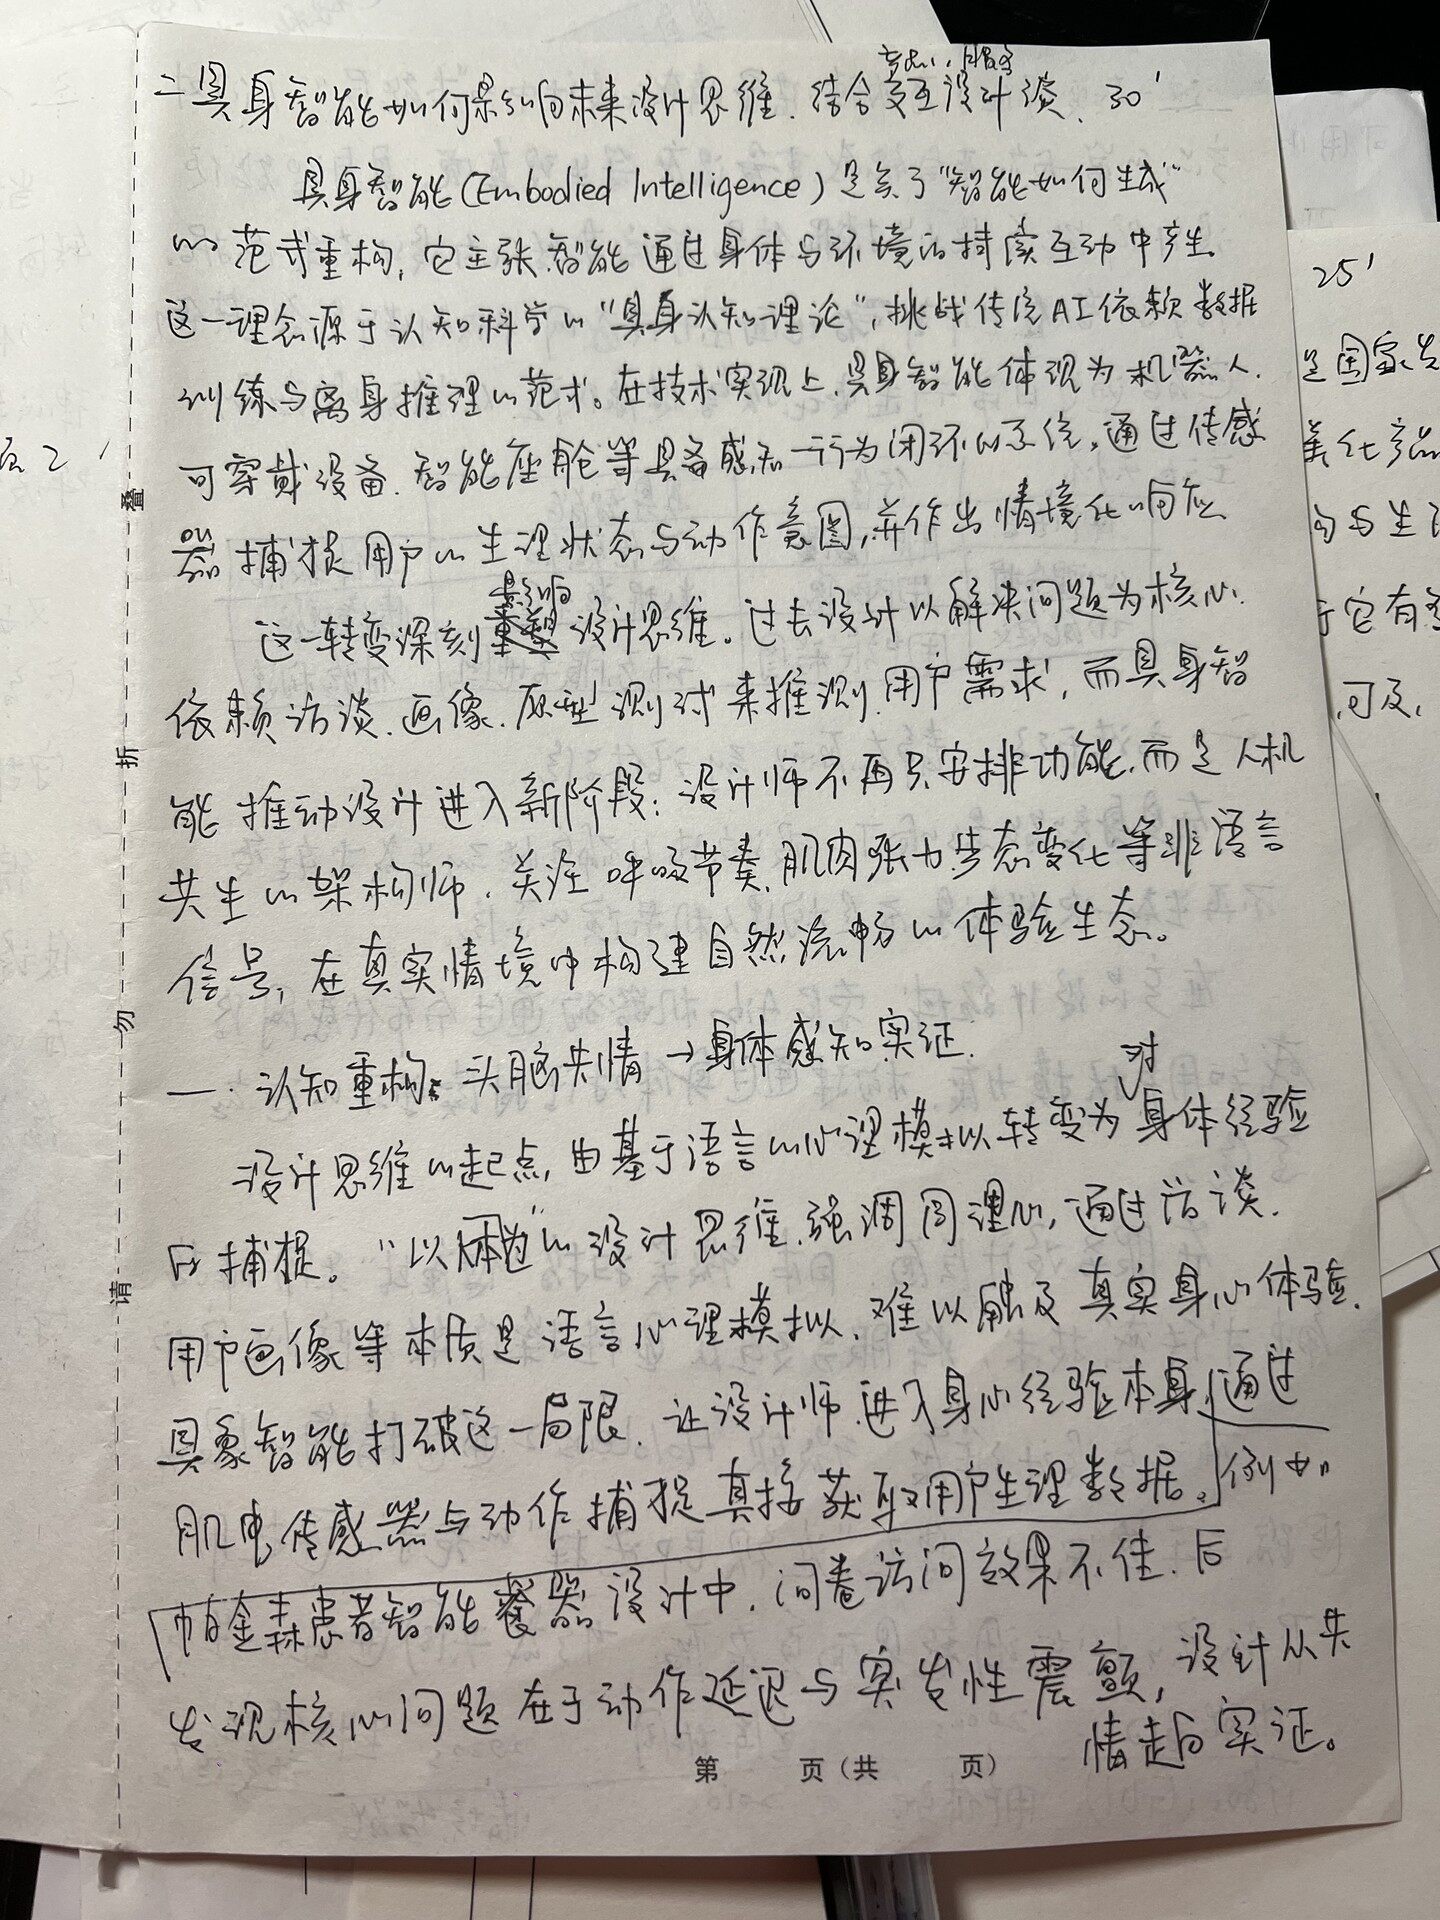 产品、服务
二具身智能如何影响未来设计思维.结合交互设计谈、30'
具身智能(Embodied Intelligence)是关于"智能如何生成"
的范式重构,它主张.智能通过身体与环境的持续互动中产生.
这一理念源于认知科学的"具身认知理论",挑战传统AI依赖数据
训练与离身推理的范式。在技术实现上.具身智能体现为机器人.
可穿戴设备.智能座舱等具备感知一行为闭环的系统,通过传感
器捕捉用户的生理状态与动作意图,并作出情境化响应
影响
这一转变深刻重塑设计思维。过去设计以解决问题为核心.
依赖访谈.画像.原型测试来推测用户需求,而具身智
能推动设计进入新阶段:设计师不再只安排功能.而是人机
共生的架构师.关注呼吸节奏.肌肉张力.步态变化等非语言
信号,在真实情境中构建自然流畅的体验生态。
一.认知重构:头脑共情→身体感知实证.
对
设计思维的起点,由基于语言的心理模拟转变为身体经验
的捕捉。"以人体为"的设计思维.强调同理心,通过访谈.
用户画像等本质是语言心理模拟.难以触及真实身心体验.
具象智能打破这一局限.让设计师进入身心经验本身,通过
肌电传感器与动作捕捉真接获取用户生理数据。例如
帕金森患者智能餐器设计中.问卷访问效果不佳.后
发现核心问题在于动作延迟与突发性震颤,设计从共
情走向实证。
第 页(共 页)
请 勿 折 叠
25'
是国家发
美化产品
与生
它有
可及,